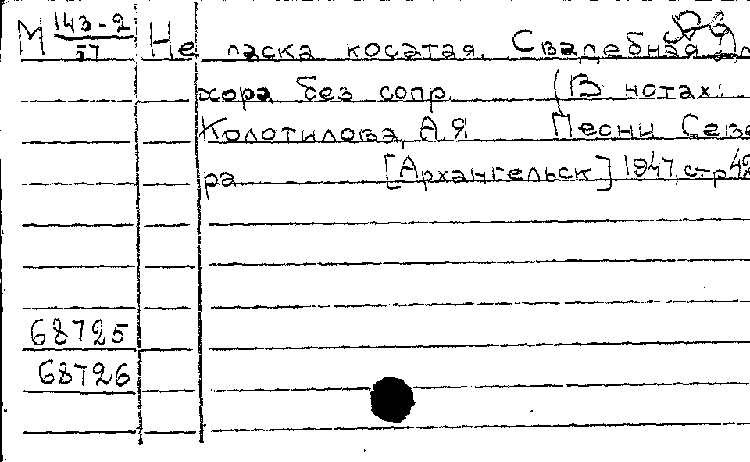 М 143-2/57 Не ласка косатая. Свадебная Дл
хора без сопр. (В нотах:
Колотилова, А.Я. Песни Севе
ра [Архангельск] 1947, стр 42
68725
68726